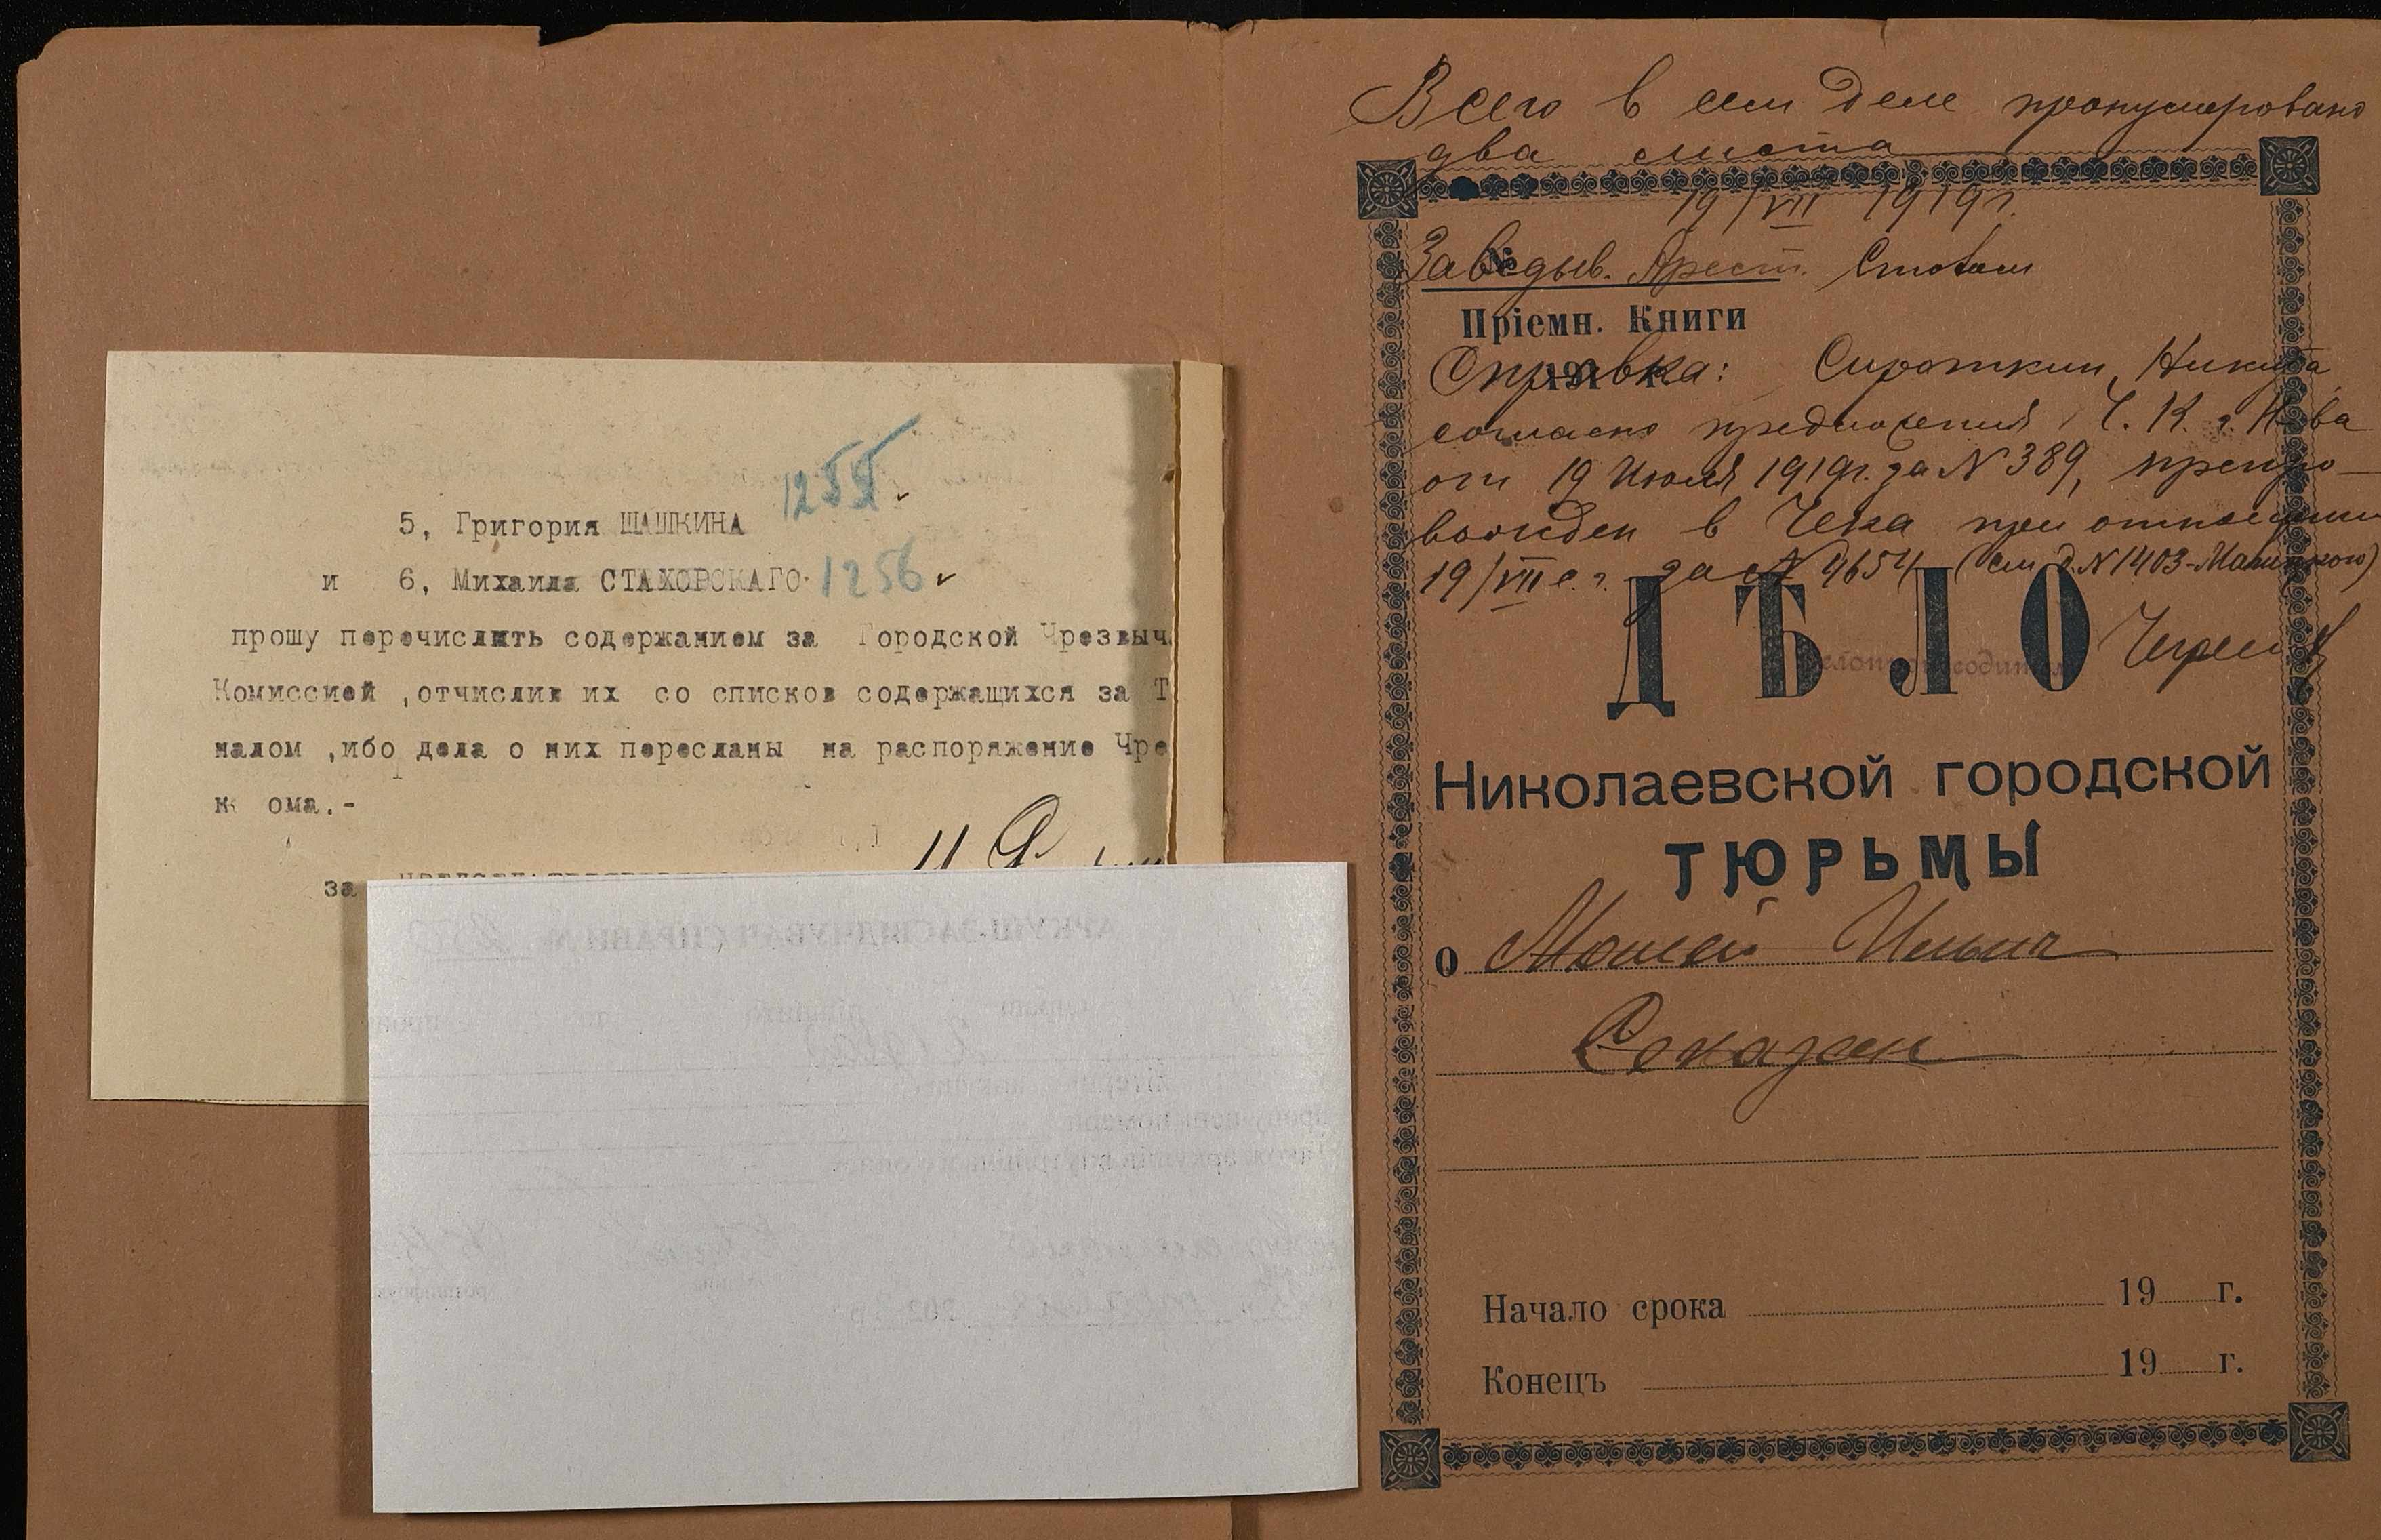 1255
5, Григория ШАШКИНА
и 6, Михаила СТАХОВСКАГО 1256
прошу перечислить содержанием за Городской Чрезвыч
Комиссией ,отчислив их со списков содержащихся за Т
налом ,ибо дела о них пересланы на распоряжение Чре
к ома.-
за
АРКУШ-ЗАСВІДЧУВАЧ СПРАВИ №
Всего в сем деле пронумеровано
два листа
19/VII 1919г.
№
Заведыв. Арест. Столом
Пріемн. Книги
Справка: Сироткин, Никита
согласно предложения Ч. К. г. Н-ва
от 19 Июля 1919г. за N 389, препро-
вожден в Чека при отношении
19/VII с. г. за N 4654 (см д. N 1403-Малицкого)
ДѢЛО
Николаевской городской
ТЮРЬМЫ
о Мошей Ильич
Начало срока 19 г.
Конецъ 19 г.